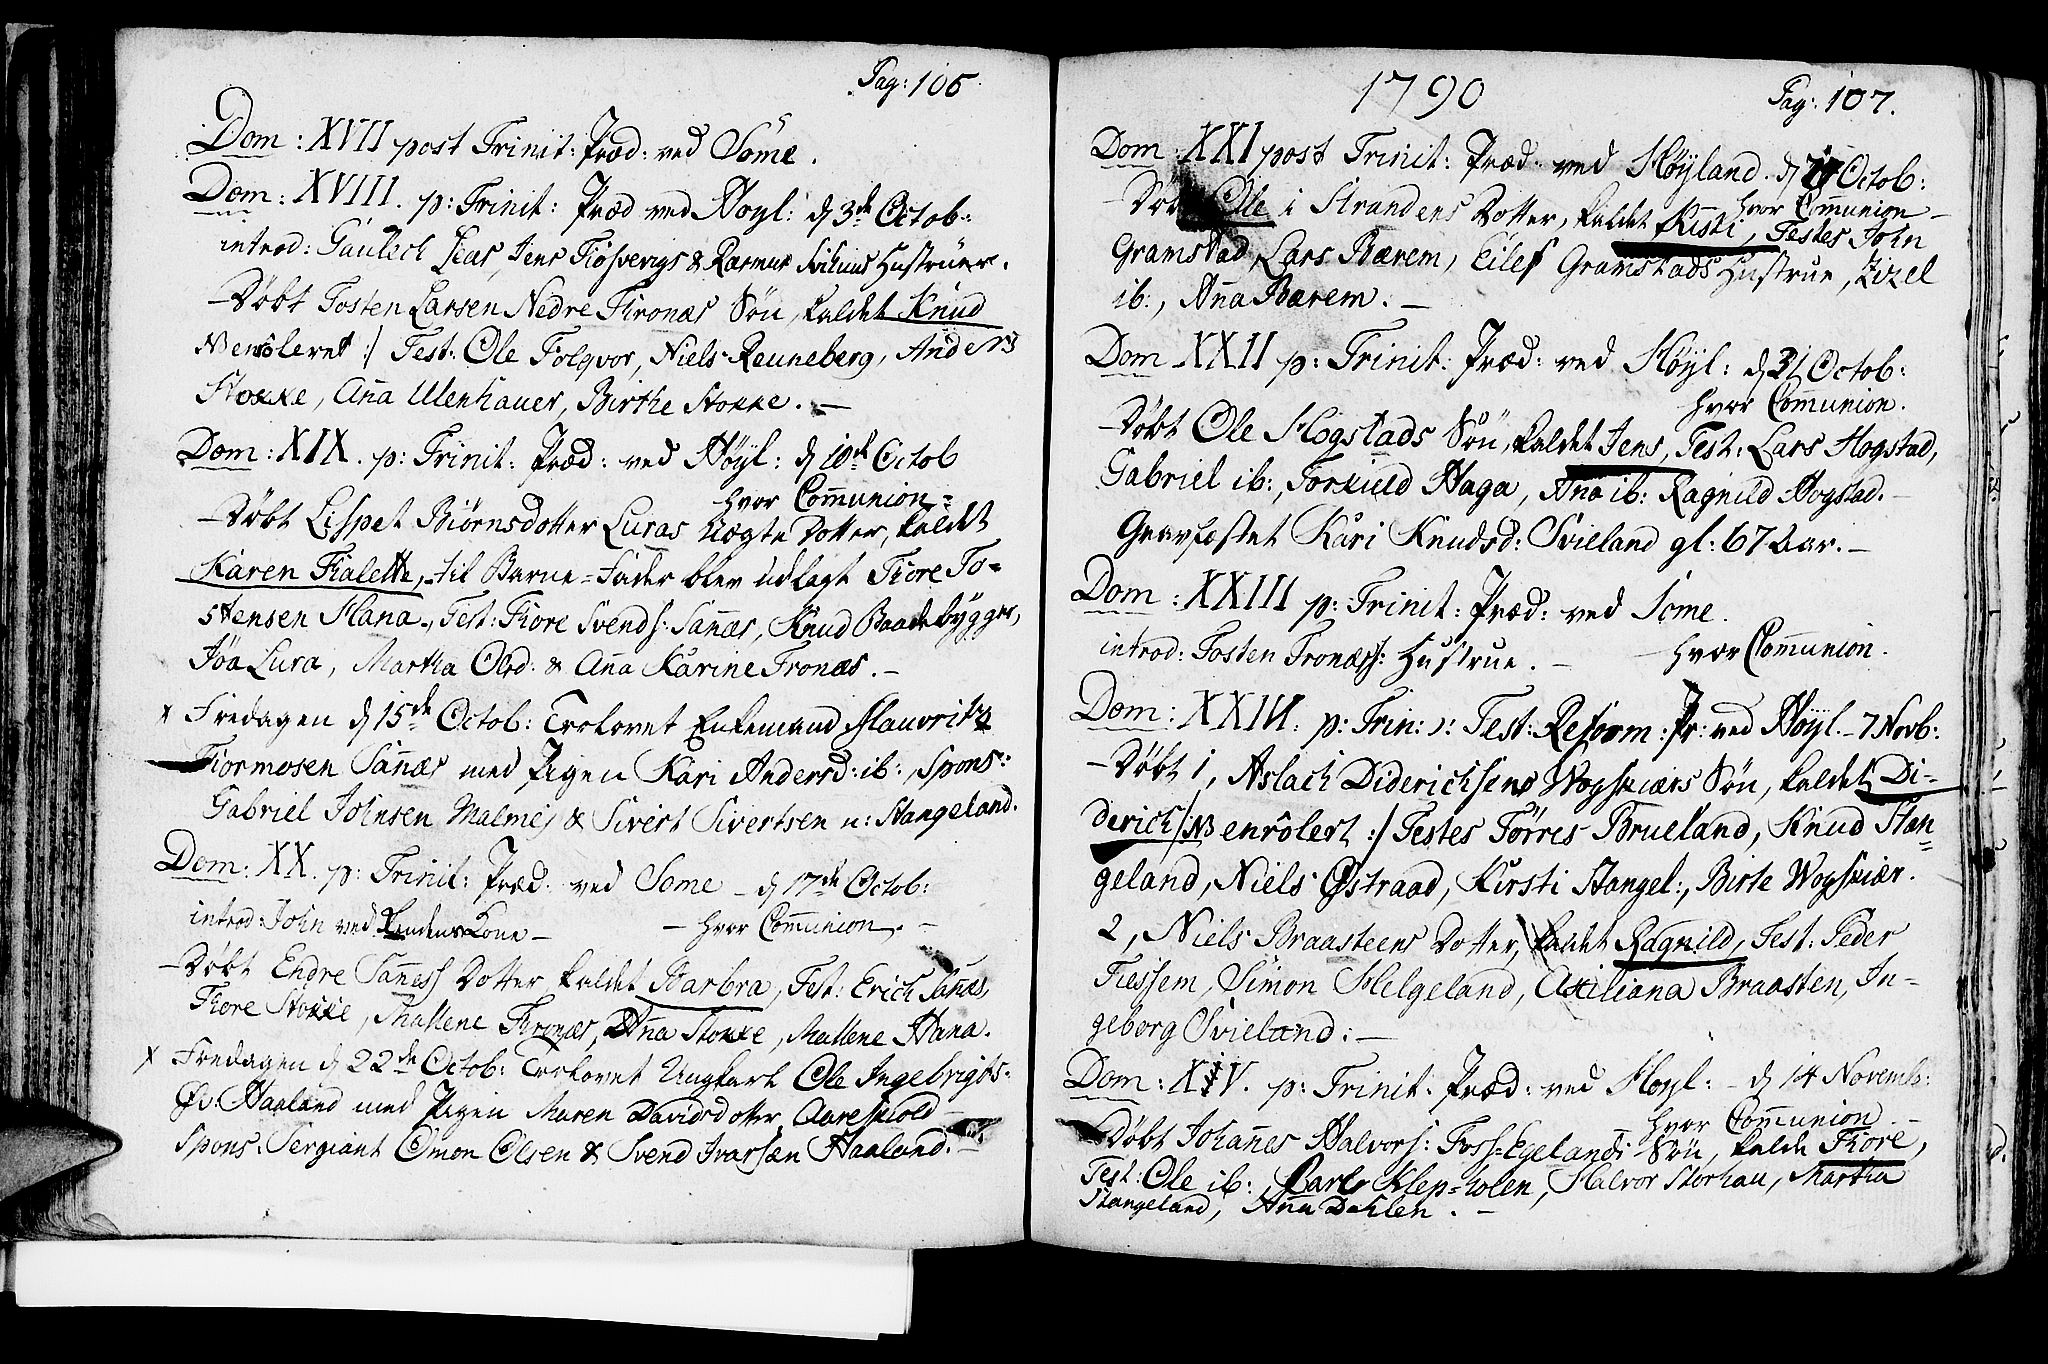 Pag: 106.
Dom: XVII post Trinit: Præd: ved Sóme.
Dom: XVIII. p: Trinit: Præd ved Höyl: d 3de Octob:
introd: Gaulech Leas, Jens Tiösverigs & Rasmus Hustruer.
Döbt Tosten Larsen Nedre Tronæs Sön, kaldet Knud
NB enroleret :/ Test: Ole Folqvor, Niels Renneberg, Anders
Stokke, Aña Ulenhauer, Birthe Stokke. —
Dom: XIX. p: Trinit: Præd: ved Höyl: d 10de Octob
hvor Com̃union =
— Döbt Lispet Biörnsdotter Luras Uægte Dotter, kaldet
Karen Tialette, til Barne-Fader blev udlagt Tiore To-
stensen Hana, Test: Tiore Svends: Sañæs, Knud Baadebygger,
Jöa Lura, Martha Olsd: & Aña Karine Tronæs. —
x Fredagen d 15de Octob: Trolovet Enkemand Mauritz
Tiormosen Sañæs med Pigen Kari Andersd: ib:, Spons:
Gabriel Johnsen Malmej & Sivert Sivertsen n: Stangeland.
Dom: XX. p: Trinit: Præd. ved Some — d 17de Octob:
introd: John ved Kone — — hvor Com̃union. —
— Döbt Endre Sañess Dotter kaldet Barbra, Test: Erich Sañæs,
Tiore Stokke, Mallene Tronæs, Aña Stokke, Mallene Hana.
x Fredagen d 22de Octob: Trolovet Ungkarl Ole Ingebrigts:
Öv: Haaland med Pigen Maren Davidsdotter Aareskiold —
Spons: Sergiant Omon Olsen & Svend Ivarsen Haaland. —
1790
Pag: 107.
Dom: XXI post Trinit: Præd: ved Höyland. d Octob:
hvor Com̃union —
— Döbt Ole i Strandens Dotter, kaldet Kisti, Testes John
Gramstad, Lars Bærem, Eilef Gramstads Hustrue, Zizel
ib:, Aña Bærem. —
Dom XXII p: Trinit: Præd: ved Höyl: d 31 Octob:
hvor Com̃union.
— Döbt Ole Hogstads Sön, kaldet Jens, Test: Lars Hogstad,
Gabriel ib:, Torkild Haga, Aña ib: Ragnild Hogstad. —
Gravfæstet Kari Knudsd: Svieland gl: 67 Aar. —
Dom: XXIII p: Trinit: Præd: ved Some.
introd: Tosten Tronæss: Hustrue. — — hvor Com̃union.
Dom: XXIII. p: Trin: ɔ: Fest: Reform: Pr: ved Höyl. — 7 Novb:
— Döbt 1, Aslach Diderichsens Wogskiærs Sön, kaldet Di-
derich /: NB enrôlert :/ Testes Törres Brueland, Knud Stan-
geland, Niels Östraad, Kirsti Stangel:, Birte Wogskiær.
2, Niels Braasteens Dotter, kaldet Ragnild, Test: Peder
Tiessem, Simon Helgeland, Axeliana Braasten, In-
geborg Svieland: —
Dom: XXIV. p: Trinit: Præd: ved Höyl: — d 14 Novemb:
hvor Com̃union —
Döbt Johañes Halvors: Foss-Egelands Sön, kalde Tiore,
Test: Ole ib:, Barle Klep-holen, Halvor Storhau, Martha
Stangeland, Aña Dahlen. —